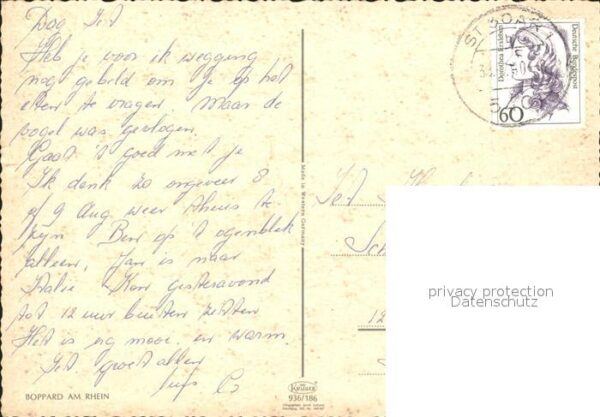 Dag Jet
Heb je voor ik wegging
nog gebeld om je op het
eten te vragen. Maar de
vogel was gevlogen.
Gaat 't goed met je
Ik denk zo ongeveer 8
of 9 Aug weer thuis te
zijn Ben op 't ogenblik
alleen, Jan is naar
Italie Kon gisteravond
tot 12 uur buiten zitten
Het is erg mooi en warm.
Jet groet allen
liefs
BOPPARD AM RHEIN
Made in Western Germany
Krüger
936/186
ST GOAR
Deutsche Bundespost
Dorothea Erxleben
60
Jet
Sch
12
privacy protection
Datenschutz